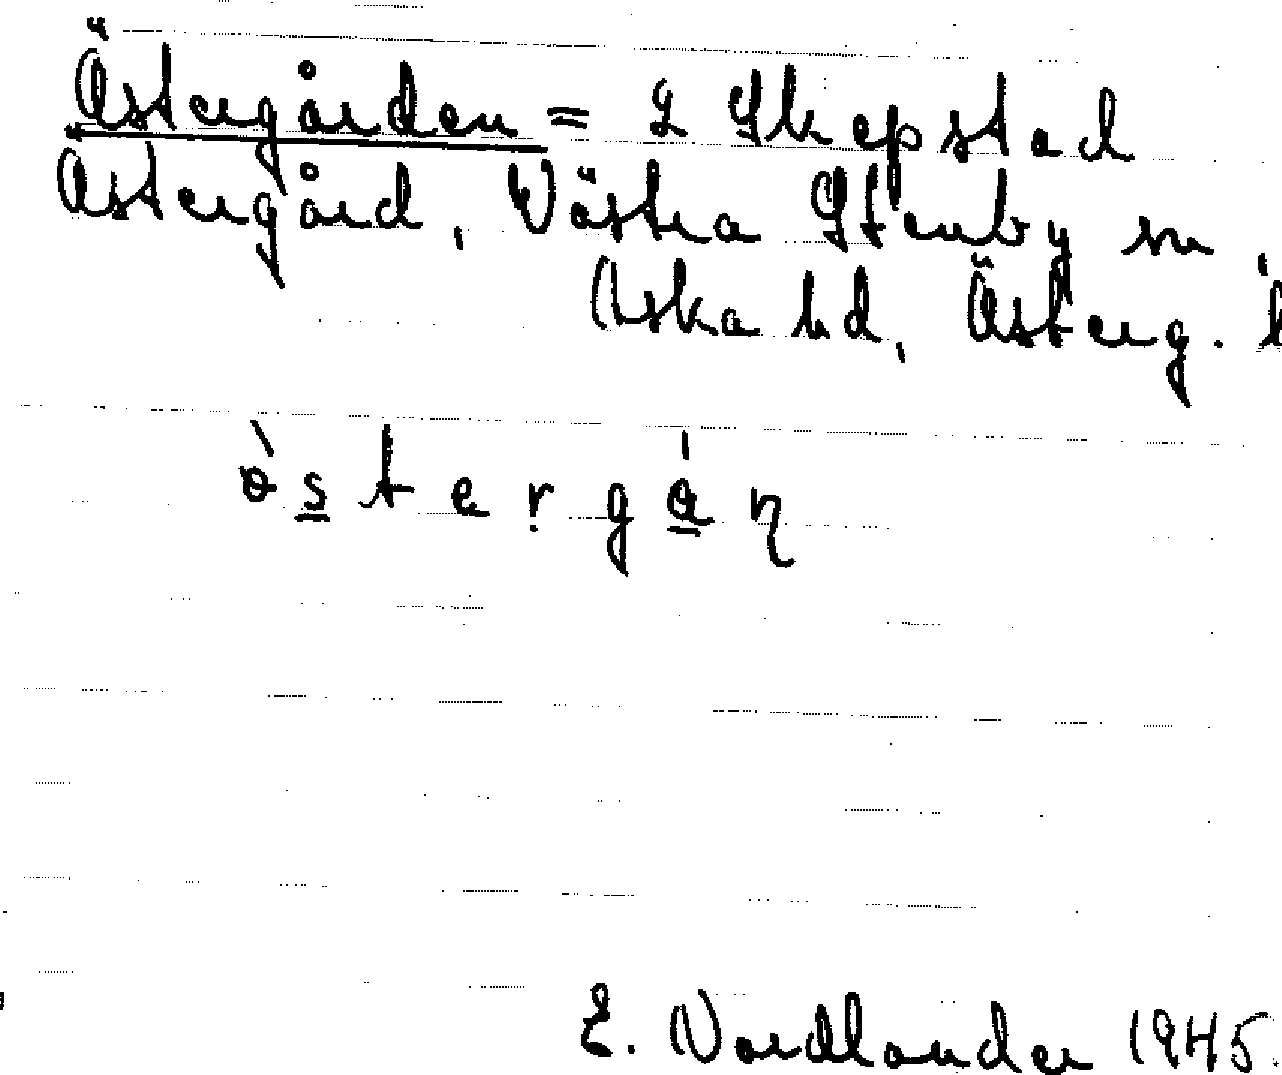 Östergården = 2 Skepstad
Östergård, Västra Stenby sn,
Aska hd, Österg. l
östergån
E. Nordlander 1945.